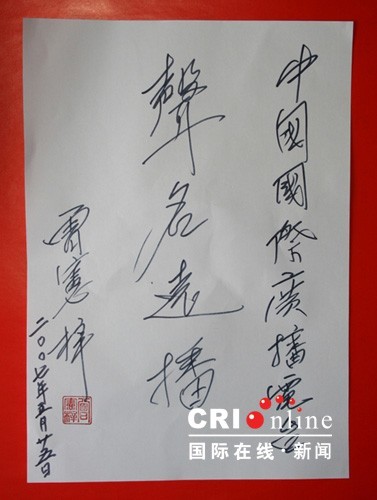 中國國際廣播電台
聲名遠播
曾憲梓
二〇〇七年五月廿五日
CRI Online
国际在线·新闻